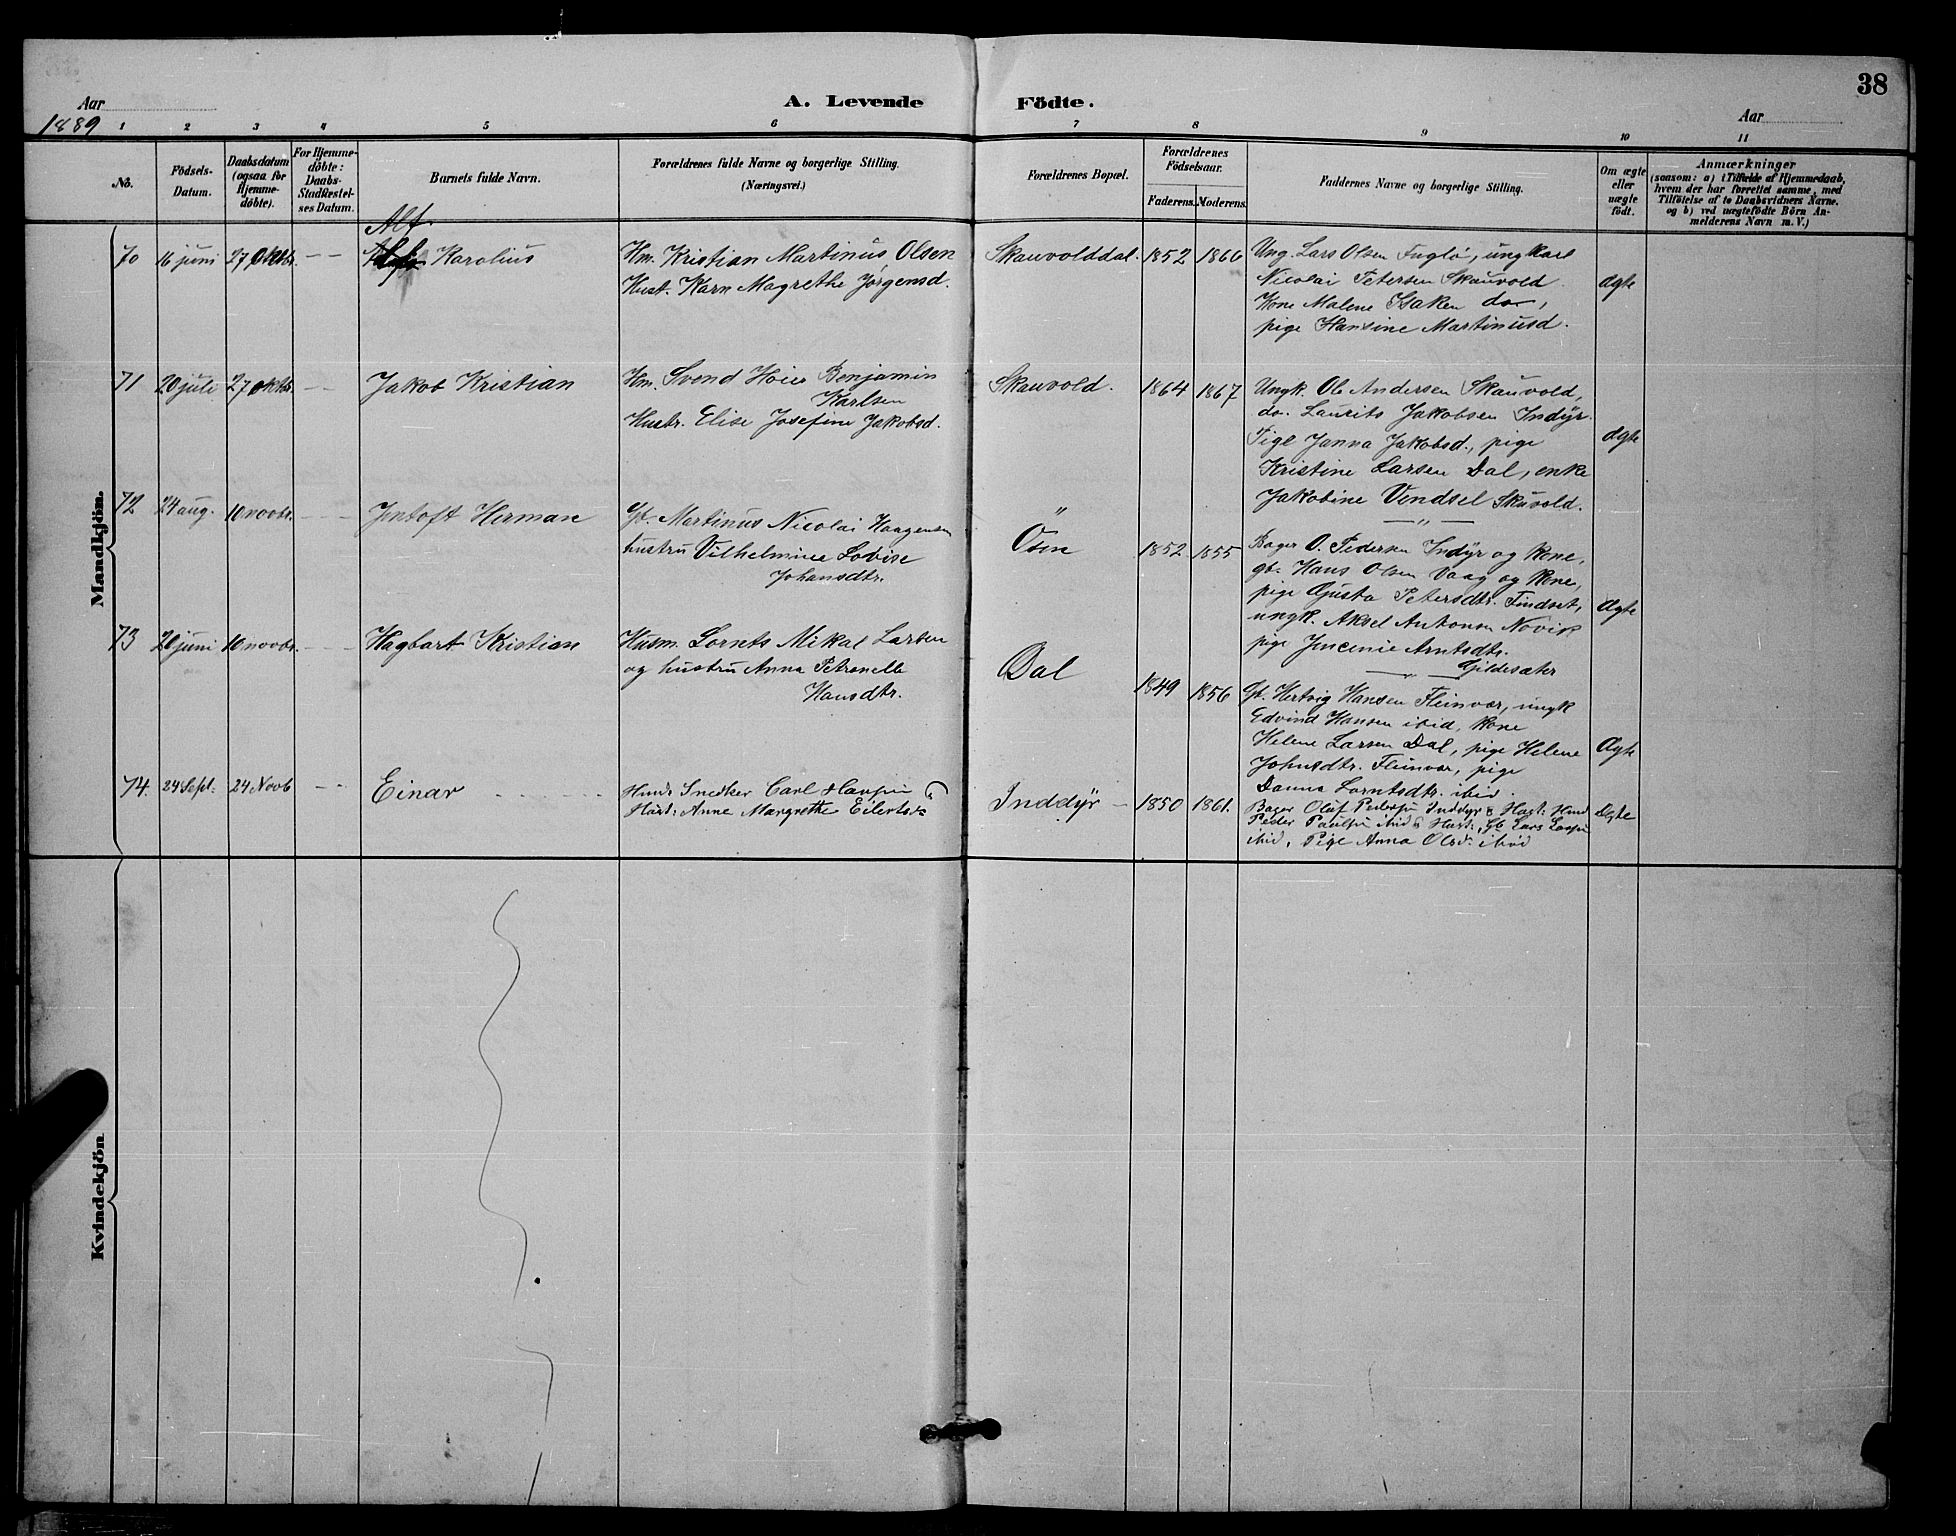 38
Aar
1889
A. Levende Födte.
Aar
1 2 3 4 5 6 7 8 9 10 11
No.
Födsels-
Datum.
Daabsdatum
(ogsaa for
Hjemme-
döbte).
For Hjemme-
döbte:
Daabs-
Stadfestel-
ses Datum.
Barnets fulde Navn.
Forældrenes fulde Navne og borgerlige Stilling.
(Næringsvei.)
Forældrenes Bopæl.
Forældrenes
Födselsaar.
Faderens. Moderens.
Faddernes Navne og borgerlige Stilling.
Om ægte
eller
uægte
födt.
Anmærkninger
(saasom: a) i Tilfælde af Hjemmedaab,
hvem der har forrettet samme, med
Tilföielse af to Daabsvidners Navne.
og b) ved uægtefödte Börn An-
melderens Navn m. V.)
Mandkjön.
70
16 juni
27 oktbr.
Alf
Karolius
Hm. Kristian Martinus Olsen
Hust. Karn Magrethe Jörgensd.
Skauvolddal.
1852
1866
Ung. Lars Olsen Fuglö, ungkarl
Nicolai Petersen Skauvold
Kone Malene Isaken do,
pige Hansine Martinusd.
ægte
71
20 juli
27 oktbr
Jakob Kristian
Hm. Svend Höier Benjamin
Karlsen
Hustr. Elise Josefine Jakobsd.
Skauvold.
1864
1867
Ungk. Ole Andersen Skauvold,
do. Laurits Jakobsen Indyr.
Pige Janna Jakobsd., pige
Kristine Larsen Dal, enke
Jakobine Vendsel Skuvold.
ægte
72
24 aug.
10 novbr.
Jntoft Herman
Gb. Martinus Nicolai Haagensen
hustru Vilhelmine Lovise
Johansdtr.
Osen
1852
1855
Bager O. Pedersen Indyr og Kone,
gb. Hans Olsen Vaag og Kone,
pige Gusta Petersdtr. Findset,
ungk. Aksel Antonsen Novik
pige Jencenie Arntsdtr.
Gildesæter
Ægte
73
20 juni
10 novbr.
Hagbart Kristian
Husm. Lornts Mikal Larsen
og hustru Anna Petrenelle
Hansdtr.
Dal
1849
1856
Gb. Hertvig Hansen Fleinvær, ungk
Edvind Hansen ibid, Kone
Helene Larsen Dal, pige Helene
Johnsdtr. Fleinvær, pige
Danna Lorntsdtr. ibid.
Ægte
74.
24 Sept.
24 Novb
Einar
Huus Snedker Carl Hansen &
Hust: Anne Margrethe Eilertsd
Inddyr
1850
1861.
Bager Oluf Pedersen Inddyr & Hust: Hmd
Peder Paulsen ibid & Hust:, Gb Lars Larsen
ibid, Pige Anna Olsd: ibid
Ægte
Kvindekjön